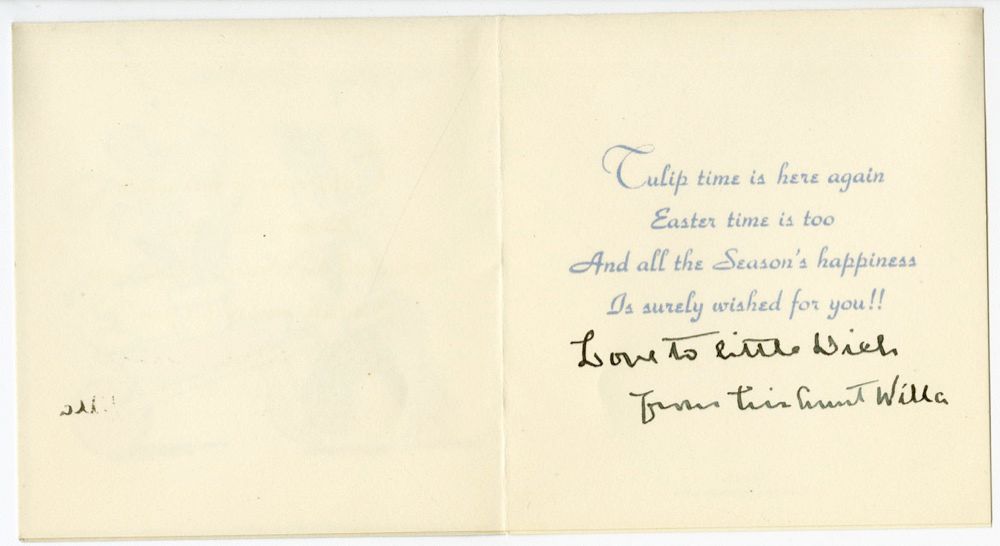 Tulip time is here again
Easter time is too
And all the Season's happiness
Is surely wished for you!!
Love to little Dick
from his Aunt Willa